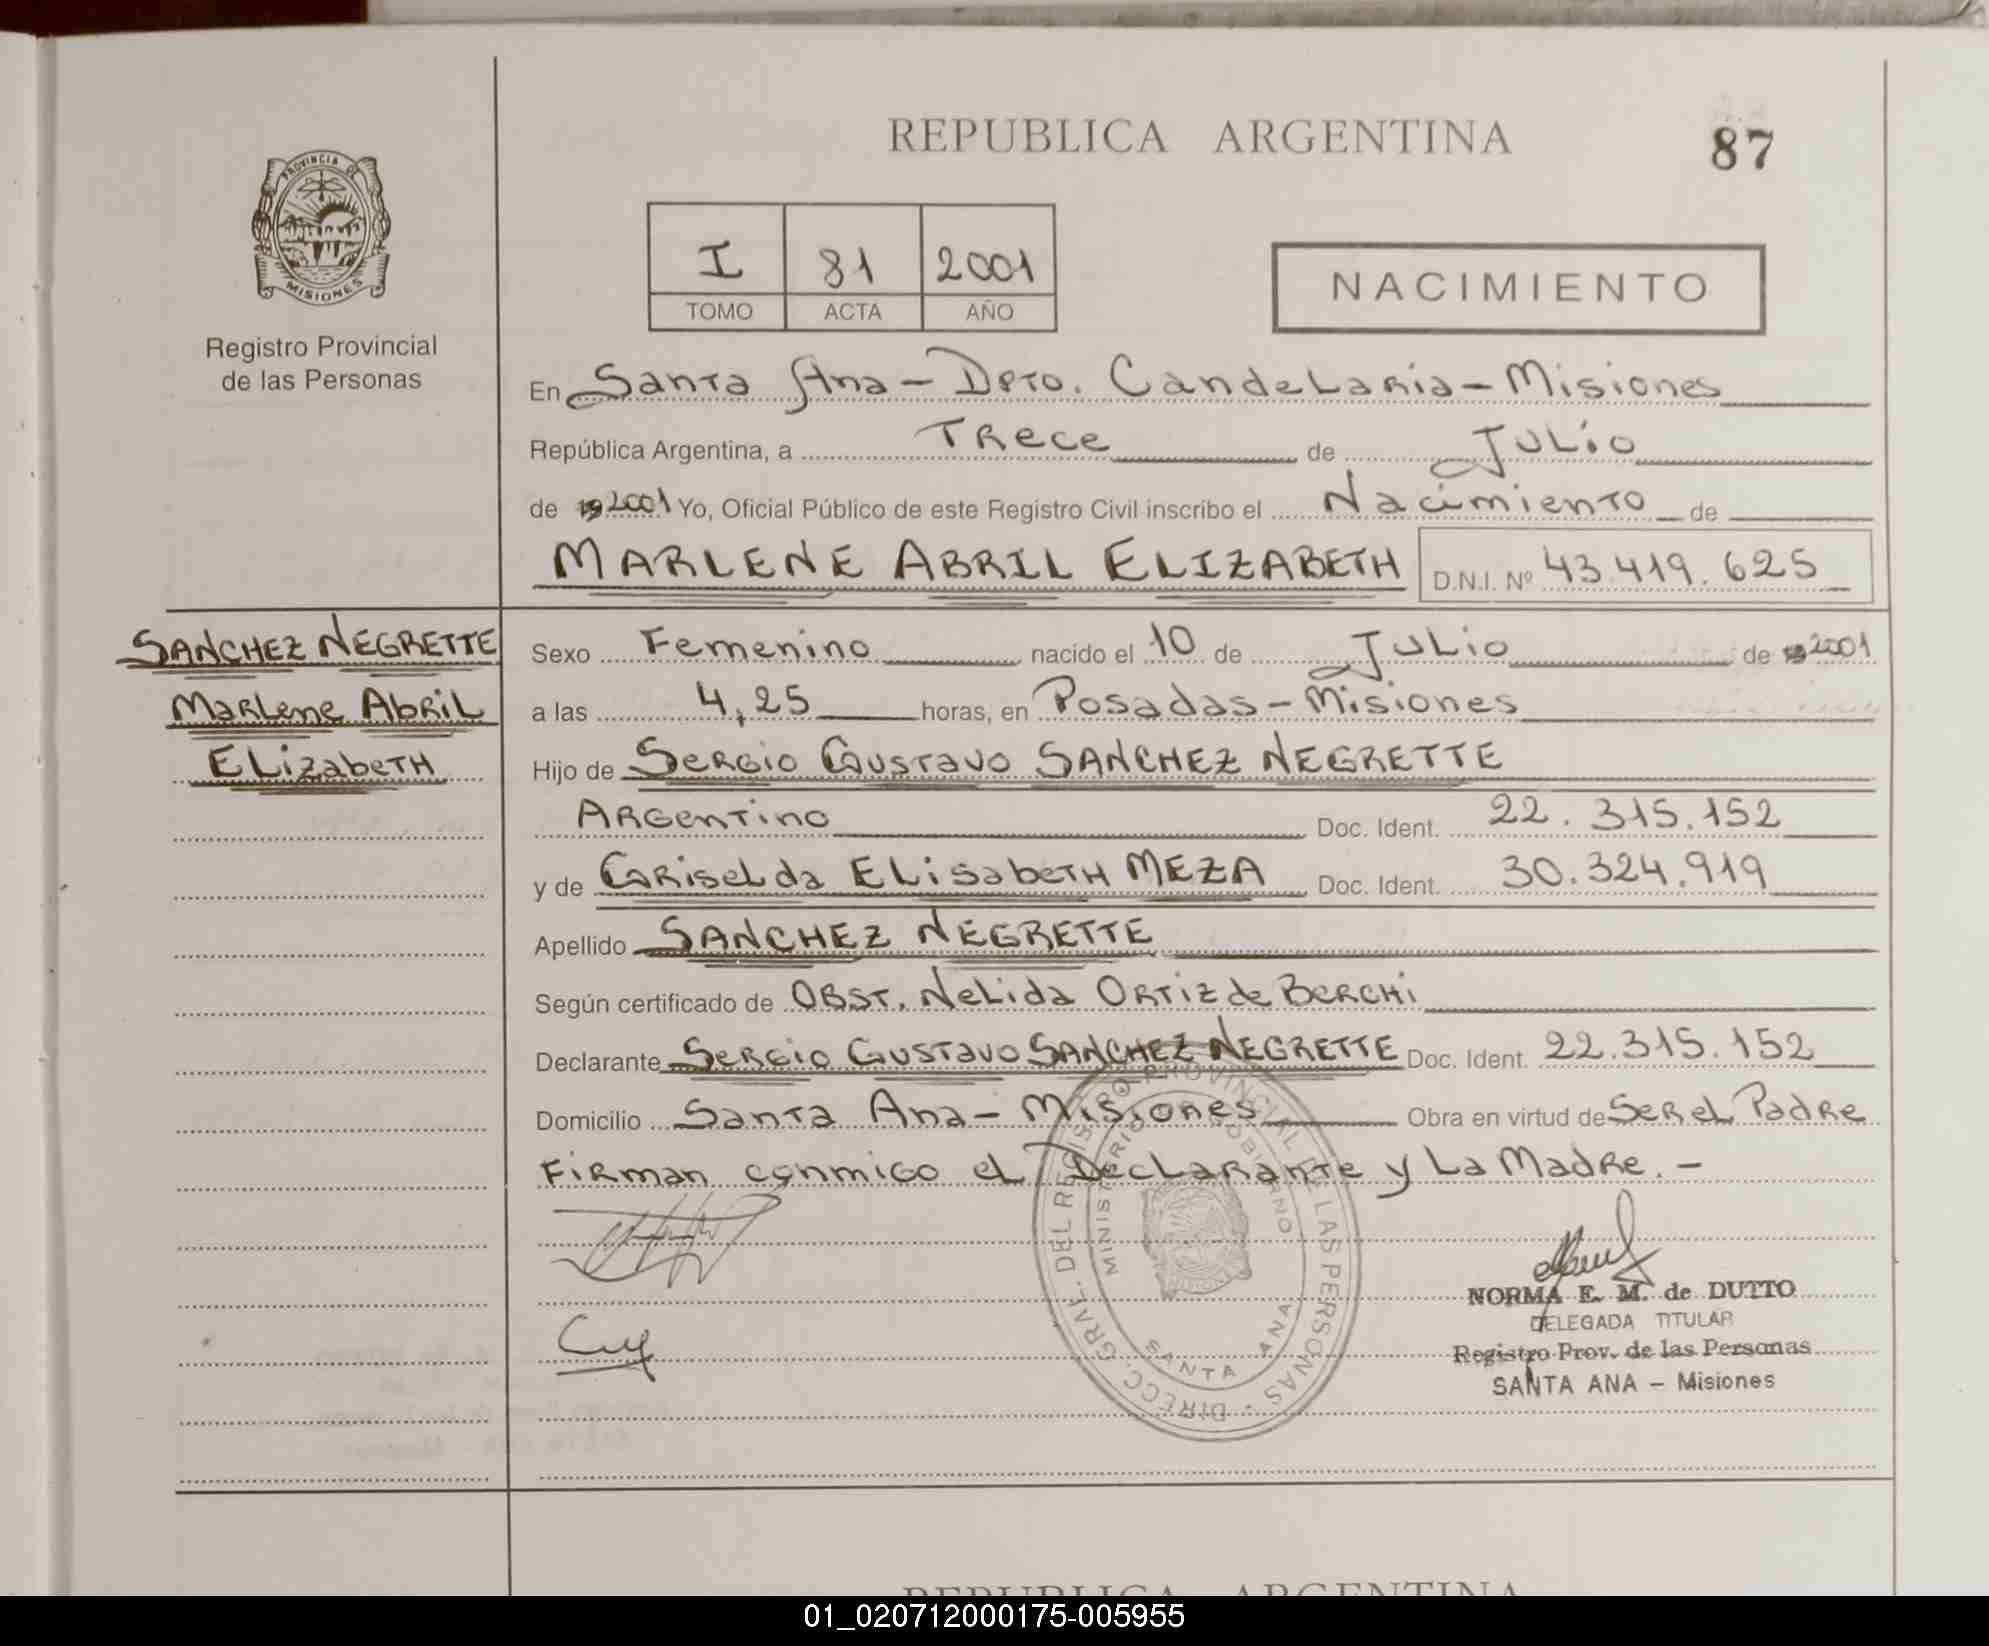 REPUBLICA ARGENTINA
87
PROVINCIA DE
MISIONES
Registro Provincial
de las Personas
I 81 2001
TOMO ACTA AÑO
NACIMIENTO
En Santa Ana - Dpto. Candelaria - Misiones
República Argentina, a Trece de Julio
de 19 2001 Yo, Oficial Público de este Registro Civil inscribo el Nacimiento de
MARLENE ABRIL ELIZABETH D.N.I. Nº 43.419.625
SANCHEZ NEGRETTE
Marlene Abril
Elizabeth
Sexo Femenino nacido el 10 de Julio de 19 2001
a las 4,25 horas, en Posadas - Misiones
Hijo de Sergio Gustavo SANCHEZ NEGRETTE
Argentino Doc. Ident. 22.315.152
y de Griselda Elisabeth MEZA Doc. Ident. 30.324.919
Apellido SANCHEZ NEGRETTE
Según certificado de Obst. Nelida Ortiz de Berchi
Declarante Sergio Gustavo SANCHEZ NEGRETTE Doc. Ident. 22.315.152
Domicilio Santa Ana - Misiones Obra en virtud de Ser el Padre
Firman conmigo el Declarante y La Madre. -
DIRECC. GRAL. DEL REGISTRO PROVINCIAL DE LAS PERSONAS
MINISTERIO DE GOBIERNO
SANTA ANA
NORMA E. M. de DUTTO
DELEGADA TITULAR
Registro Prov. de las Personas
SANTA ANA - Misiones
REPUBLICA ARGENTINA
01_020712000175-005955